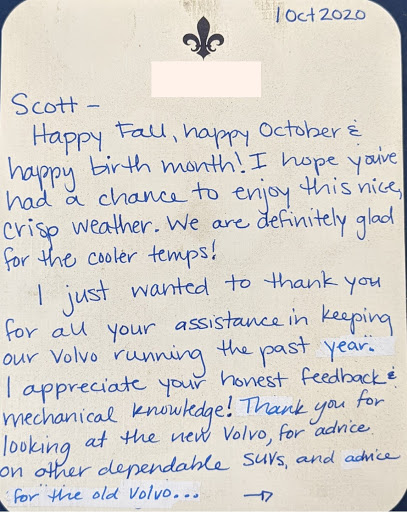 1 Oct 2020
Scott –
Happy Fall, happy October &
happy birth month! I hope you've
had a chance to enjoy this nice,
crisp weather. We are definitely glad
for the cooler temps!
I just wanted to thank you
for all your assistance in keeping
our Volvo running the past year.
I appreciate your honest feedback &
mechanical knowledge! Thank you for
looking at the new Volvo, for advice
on other dependable SUVs, and advice
for the old Volvo... →